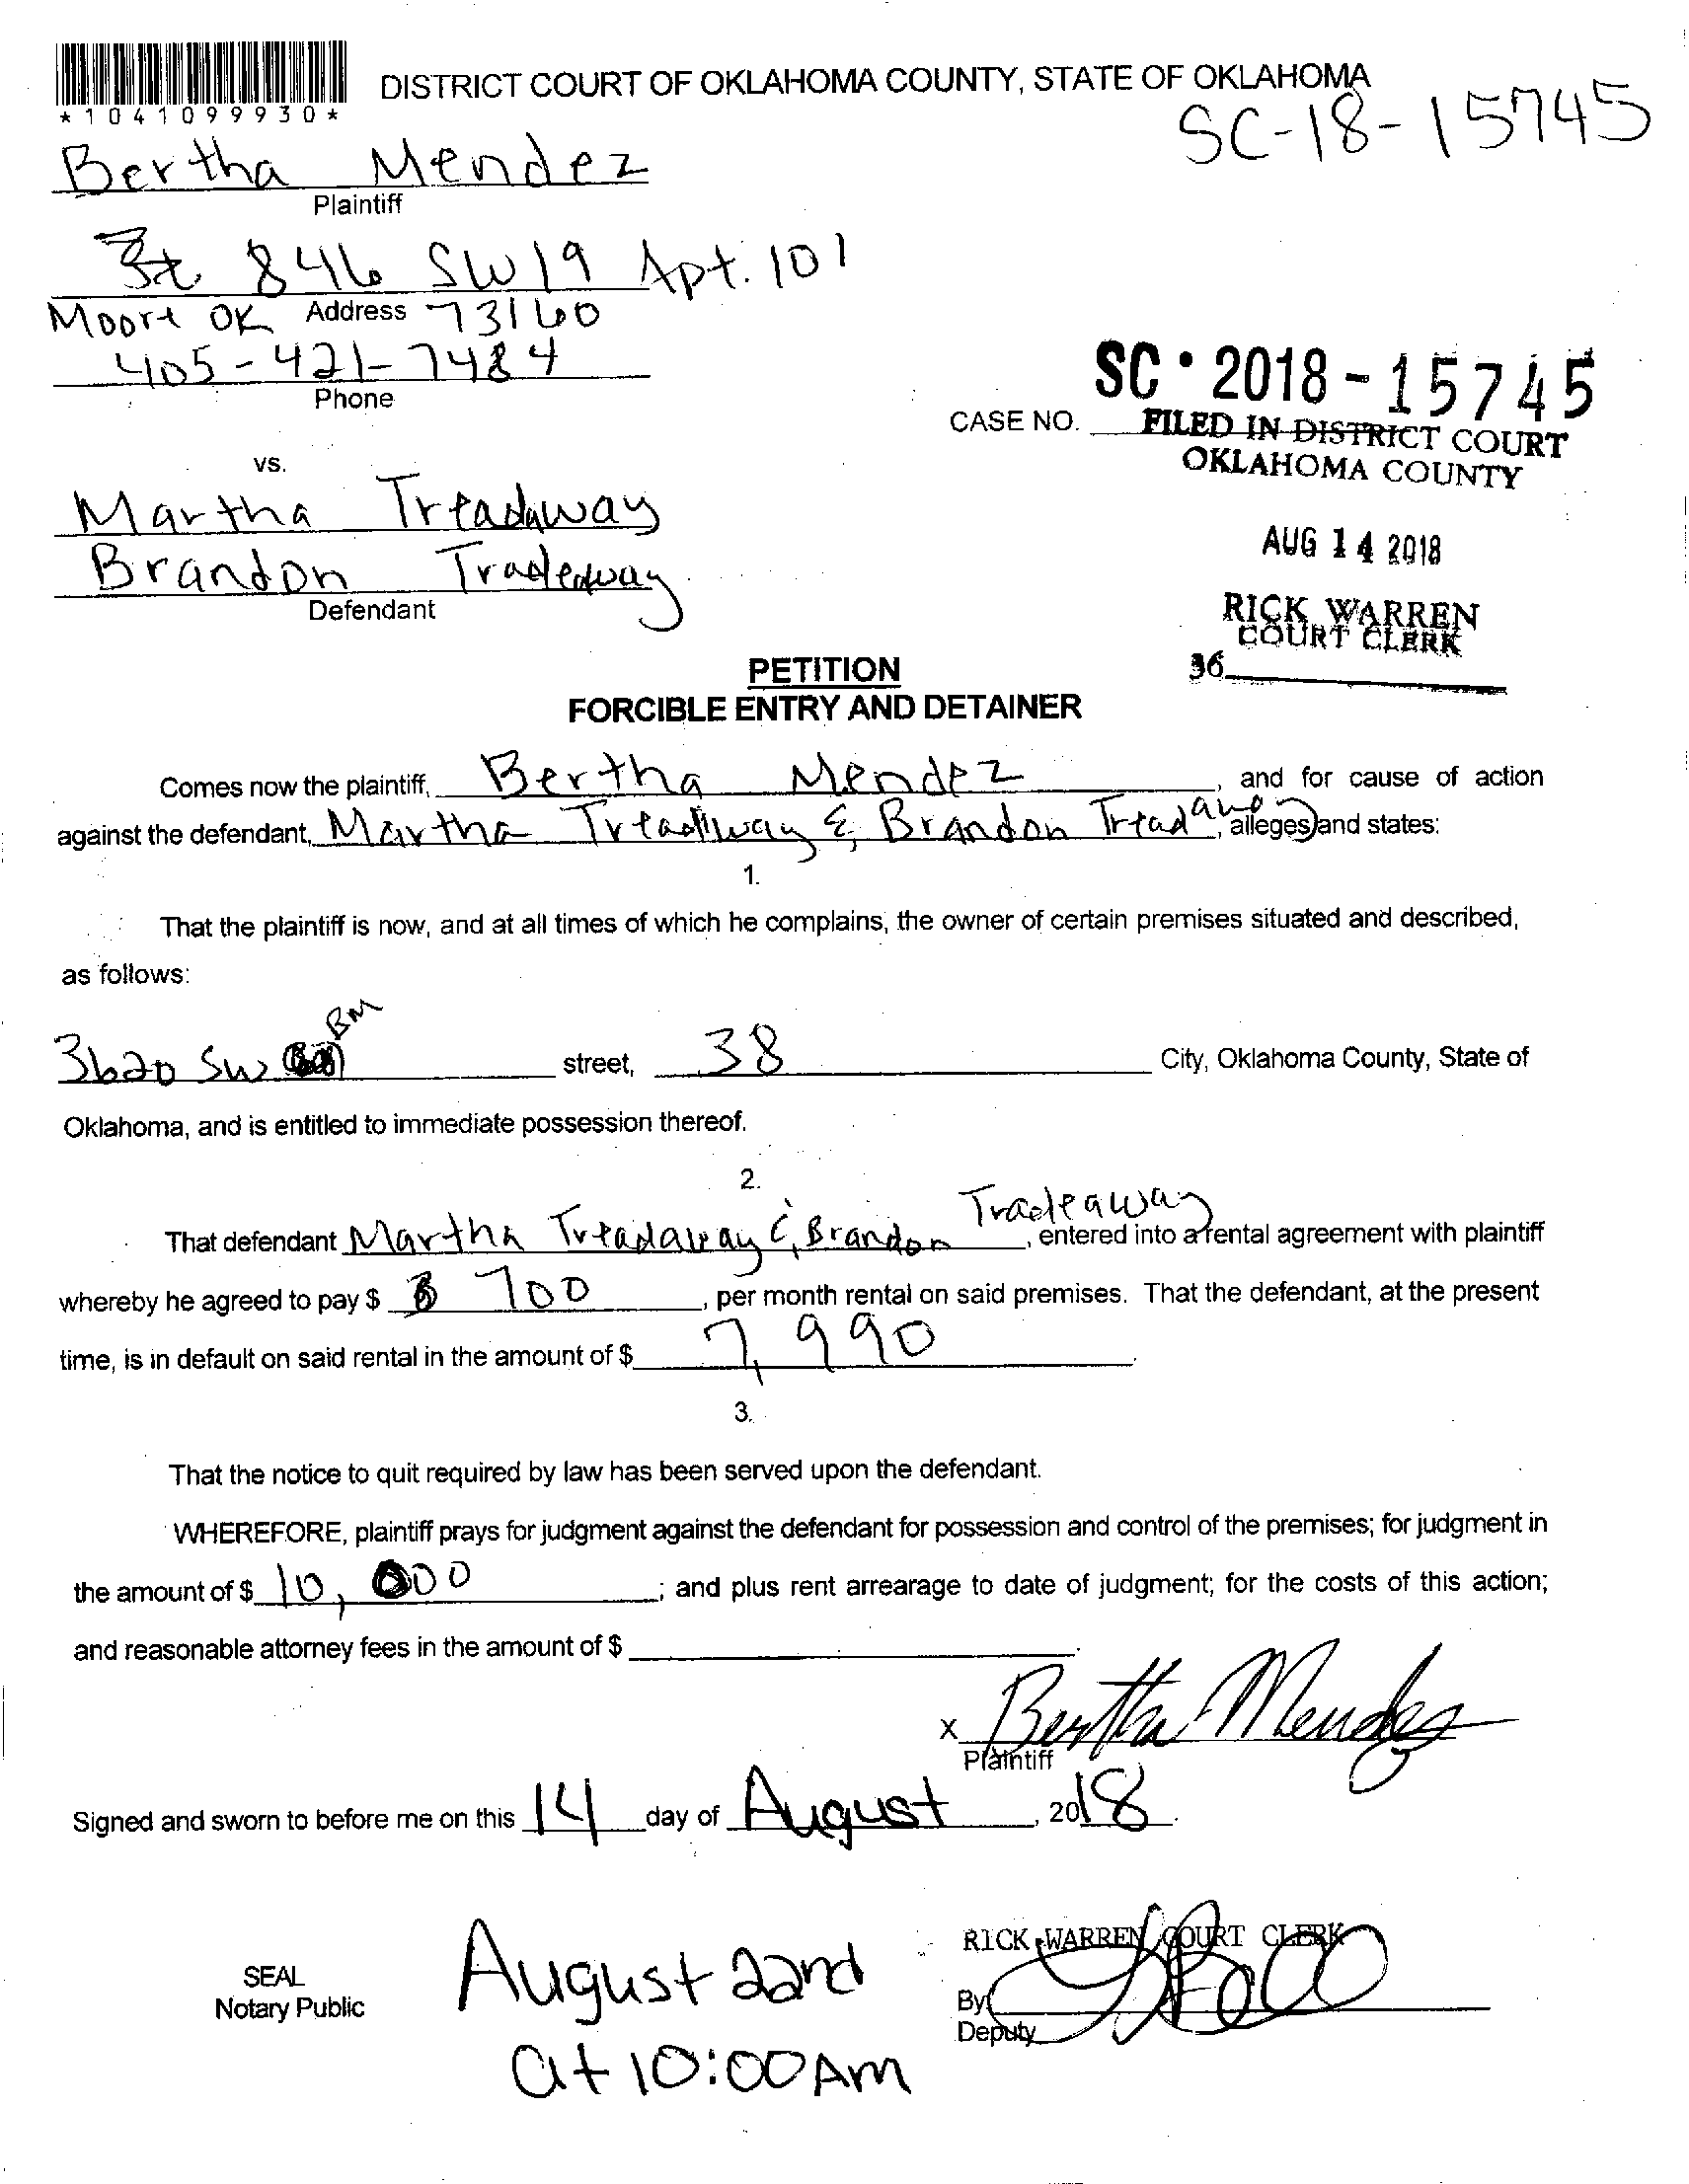 DISTRICT COURT OF OKLAHOMA COUNTY, STATE OF OKLAHOMA
*1041099930*
SC-18-15745
Bertha Mendez
Plaintiff
846 SW 19 Apt. 101
Address
Moore OK 73160
405-421-7484
Phone
SC • 2018 - 15745
CASE NO.
FILED IN DISTRICT COURT
OKLAHOMA COUNTY
vs.
Martha Treadaway
AUG 14 2018
Brandon Tradeaway
Defendant
RICK WARREN
COURT CLERK
36
PETITION
FORCIBLE ENTRY AND DETAINER
Comes now the plaintiff, Bertha Mendez, and for cause of action
against the defendant, Martha Treadway & Brandon Treadaway, alleges and states:
1.
That the plaintiff is now, and at all times of which he complains, the owner of certain premises situated and described,
as follows:
BM
3620 SW street, 38 City, Oklahoma County, State of
Oklahoma, and is entitled to immediate possession thereof.
2.
That defendant Martha Treadaway & Brandon Tradeaway, entered into a rental agreement with plaintiff
whereby he agreed to pay $ 700, per month rental on said premises. That the defendant, at the present
time, is in default on said rental in the amount of $ 7,990.
3.
That the notice to quit required by law has been served upon the defendant.
WHEREFORE, plaintiff prays for judgment against the defendant for possession and control of the premises; for judgment in
the amount of $ 10,000; and plus rent arrearage to date of judgment; for the costs of this action;
and reasonable attorney fees in the amount of $
x Bertha Mendez
Plaintiff
Signed and sworn to before me on this 14 day of August, 2018.
RICK WARREN COURT CLERK
SEAL
Notary Public
August 22nd
at 10:00 AM
By
Deputy